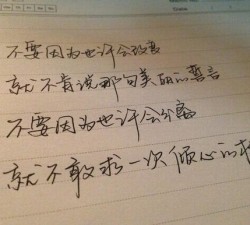 不要因为也许会改变
就不肯说那句美丽的誓言
不要因为也许会分离
就不敢求一次倾心的相